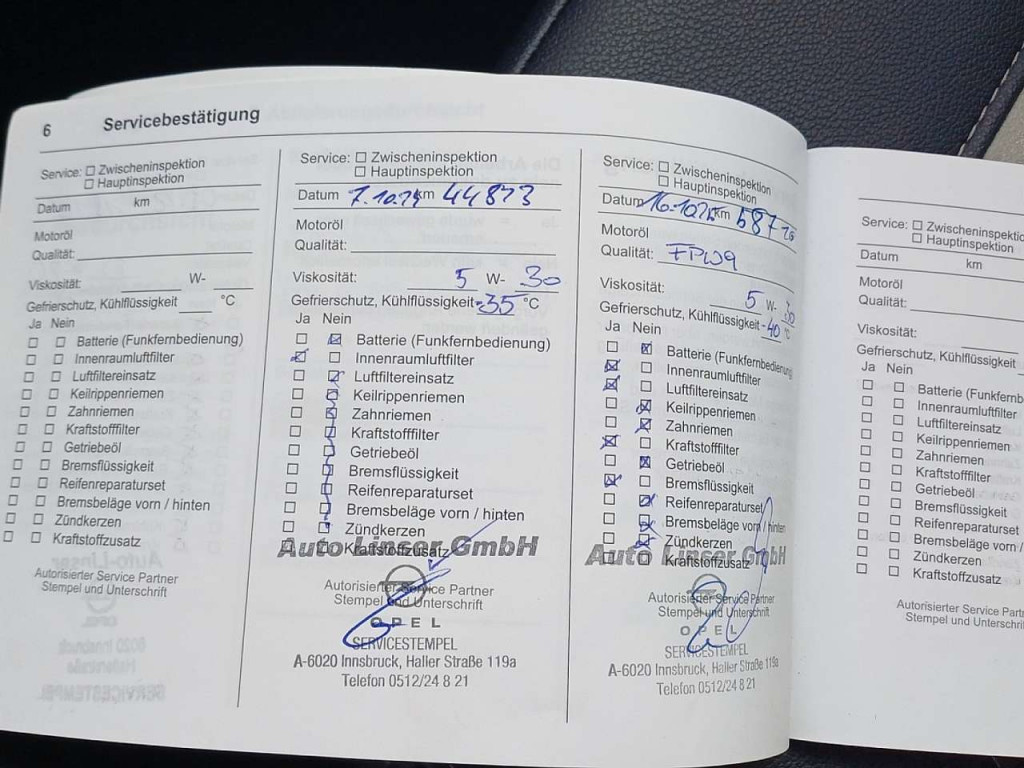 6 Servicebestätigung
Service: Zwischeninspektion
Hauptinspektion
Datum km
Motoröl
Qualität:
Viskosität: W-
Gefrierschutz, Kühlflüssigkeit °C
Ja Nein
Batterie (Funkfernbedienung)
Innenraumluftfilter
Luftfiltereinsatz
Keilrippenriemen
Zahnriemen
Kraftstofffilter
Getriebeöl
Bremsflüssigkeit
Reifenreparaturset
Bremsbeläge vorn / hinten
Zündkerzen
Kraftstoffzusatz
Autorisierter Service Partner
Stempel und Unterschrift
Service: Zwischeninspektion
Hauptinspektion
Datum 7.10.24 km 44873
Motoröl
Qualität:
Viskosität: 5 W- 30
Gefrierschutz, Kühlflüssigkeit -35 °C
Ja Nein
Batterie (Funkfernbedienung)
Innenraumluftfilter
Luftfiltereinsatz
Keilrippenriemen
Zahnriemen
Kraftstofffilter
Getriebeöl
Bremsflüssigkeit
Reifenreparaturset
Bremsbeläge vorn / hinten
Zündkerzen
Kraftstoffzusatz
Auto Linser GmbH
Autorisierter Service Partner
Stempel und Unterschrift
OPEL
SERVICESTEMPEL
A-6020 Innsbruck, Haller Straße 119a
Telefon 0512/24 8 21
Service: Zwischeninspektion
Hauptinspektion
Datum 16.10.25 km 58776
Motoröl
Qualität: FPW9
Viskosität: 5 W- 30
Gefrierschutz, Kühlflüssigkeit -40 °C
Ja Nein
Batterie (Funkfernbedienung)
Innenraumluftfilter
Luftfiltereinsatz
Keilrippenriemen
Zahnriemen
Kraftstofffilter
Getriebeöl
Bremsflüssigkeit
Reifenreparaturset
Bremsbeläge vorn / hinten
Zündkerzen
Kraftstoffzusatz
Auto Linser GmbH
Autorisierter Service Partner
Stempel und Unterschrift
OPEL
SERVICESTEMPEL
A-6020 Innsbruck, Haller Straße 119a
Telefon 0512/24 8 21
Service: Zwischeninspektio
Hauptinspektion
Datum km
Motoröl
Qualität:
Viskosität:
Gefrierschutz, Kühlflüssigkeit
Ja Nein
Batterie (Funkfernb
Innenraumluftfilter
Luftfiltereinsatz
Keilrippenriemen
Zahnriemen
Kraftstofffilter
Getriebeöl
Bremsflüssigkeit
Reifenreparaturset
Bremsbeläge vorn /
Zündkerzen
Kraftstoffzusatz
Autorisierter Service Partn
Stempel und Unterschrif